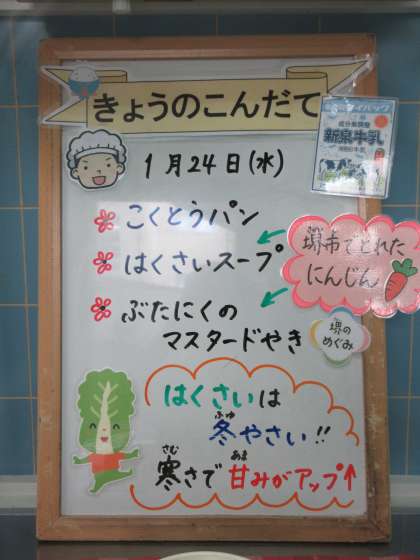 きょうのこんだて
新泉牛乳
1月24日(水)
こくとうパン
はくさいスープ
堺市でとれた
にんじん
ぶたにくの
マスタードやき
堺の
めぐみ
はくさいは
冬やさい!!
ふゆ
寒さで甘みがアップ↑
さむ あま